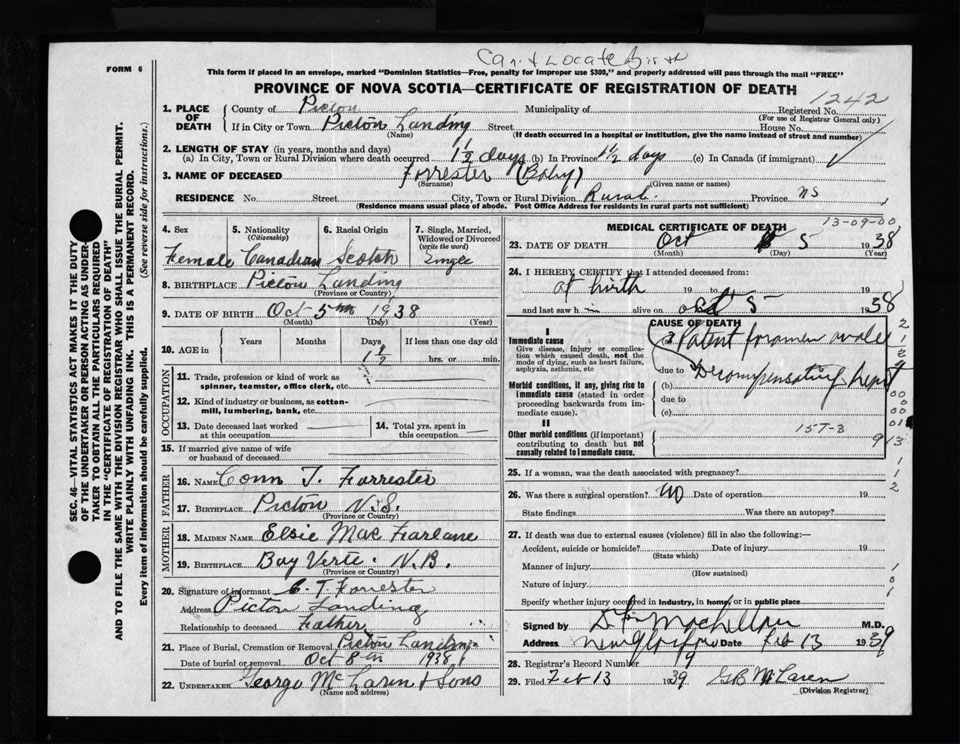 Can't Locate Birth
FORM 6
This form if placed in an envelope, marked "Dominion Statistics—Free, penalty for improper use $300," and properly addressed will pass through the mail "FREE"
PROVINCE OF NOVA SCOTIA—CERTIFICATE OF REGISTRATION OF DEATH
1242
1. PLACE OF DEATH
County of Pictou Municipality of Registered No.
(For use of Registrar General only)
If in City or Town Pictou Landing Street House No.
(Name) (If death occurred in a hospital or institution, give the name instead of street and number)
2. LENGTH OF STAY (in years, months and days)
(a) In City, Town or Rural Division where death occurred 1½ days (b) In Province 1½ days (c) In Canada (if immigrant)
3. NAME OF DECEASED Forrester (Baby)
(Surname) (Given name or names)
RESIDENCE No. Street City, Town or Rural Division Rural Province NS
(Residence means usual place of abode. Post Office Address for residents in rural parts not sufficient)
4. Sex
Female
5. Nationality
(Citizenship)
Canadian
6. Racial Origin
Scotch
7. Single, Married, Widowed or Divorced
(write the word)
Single
8. BIRTHPLACE Pictou Landing
(Province or Country)
9. DATE OF BIRTH Oct 5th 1938
(Month) (Day) (Year)
10. AGE in
Years Months Days If less than one day
1½ hrs. or min.
OCCUPATION
11. Trade, profession or kind of work as spinner, teamster, office clerk, etc.
12. Kind of industry or business, as cotton-mill, lumbering, bank, etc.
13. Date deceased last worked at this occupation
14. Total yrs. spent in this occupation
15. If married give name of wife or husband of deceased
FATHER
16. NAME Conn T. Forrester
17. BIRTHPLACE Pictou N.S.
(Province or Country)
MOTHER
18. MAIDEN NAME Elsie Mac Farlane
19. BIRTHPLACE Bay Verte N.B.
(Province or Country)
20. Signature of informant C. T. Forrester
Address Pictou Landing
Relationship to deceased Father
21. Place of Burial, Cremation or Removal Pictou Landing
Date of burial or removal Oct 8th 1938
22. UNDERTAKER George McLaren & Sons
(Name and address)
MEDICAL CERTIFICATE OF DEATH
13-09-00
23. DATE OF DEATH Oct 5 1938
(Month) (Day) (Year)
24. I HEREBY CERTIFY that I attended deceased from:
at birth 19 to 19
and last saw h alive on Oct 5 1938
CAUSE OF DEATH
I
Immediate cause
Give disease, injury or complication which caused death, not the mode of dying, such as heart failure, asphyxia, asthenia, etc
Patent foramen ovale
due to
Morbid conditions, if any, giving rise to immediate cause (stated in order proceeding backwards from immediate cause).
(b) Decompensating heart
due to
(c)
II
Other morbid conditions (if important) contributing to death but not causally related to immediate cause.
157-3
25. If a woman, was the death associated with pregnancy?
26. Was there a surgical operation? No Date of operation 19
State findings Was there an autopsy?
27. If death was due to external causes (violence) fill in also the following:—
Accident, suicide or homicide? Date of injury 19
(State which)
Manner of injury
(How sustained)
Nature of injury
Specify whether injury occurred in industry, in home, or in public place
Signed by MacLellan M.D.
Address New Glasgow Date Feb 13 1939
28. Registrar's Record Number 19
29. Filed Feb 13 1939 GB McLaren
(Division Registrar)
SEC. 46—VITAL STATISTICS ACT MAKES IT THE DUTY OF THE UNDERTAKER OR PERSON ACTING AS UNDERTAKER TO OBTAIN ALL THE PARTICULARS REQUIRED IN THE "CERTIFICATE OF REGISTRATION OF DEATH" AND TO FILE THE SAME WITH THE DIVISION REGISTRAR WHO SHALL ISSUE THE BURIAL PERMIT.
WRITE PLAINLY WITH UNFADING INK. THIS IS A PERMANENT RECORD.
Every item of information should be carefully supplied. (See reverse side for instructions.)